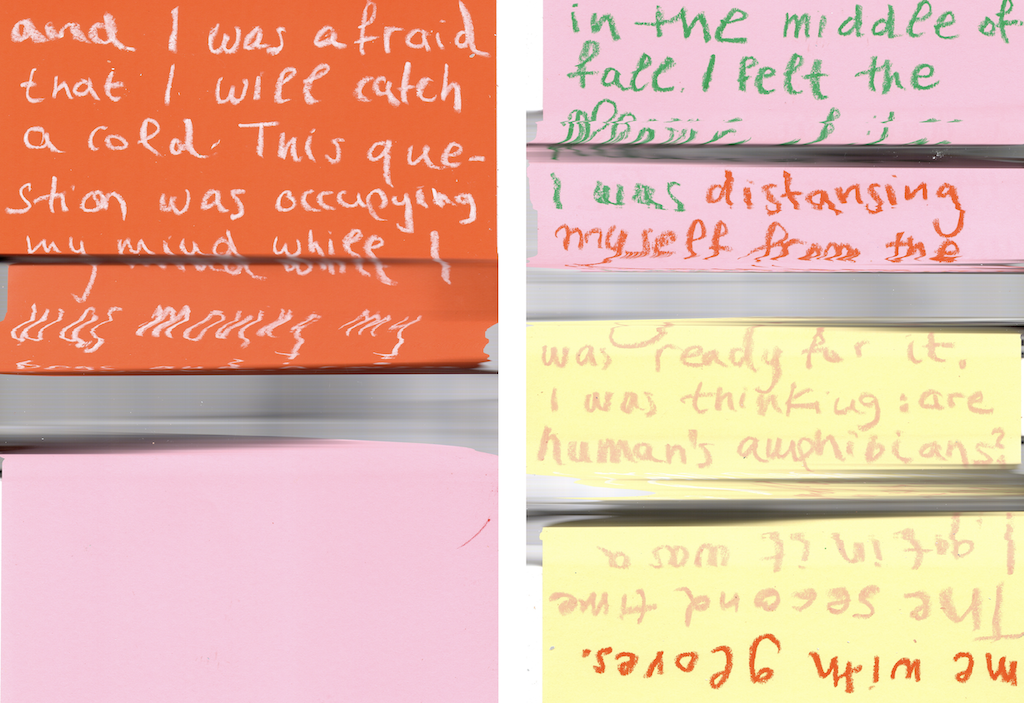 and I was afraid
that I will catch
a cold. This que-
stion was occupying
my mind while I
was moving my
in the middle of
fall. I felt the
I was distansing
myself from the
was ready for it.
I was thinking: are
human's amphibians?
me with gloves.
The second time
I got in it was a